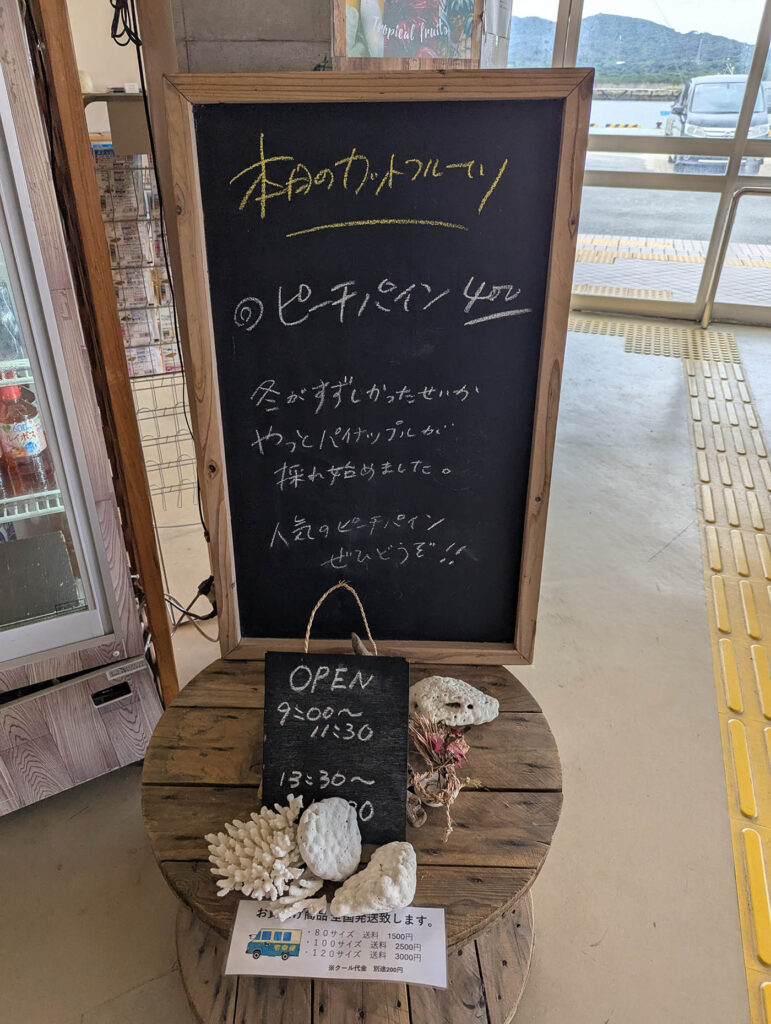 Tropical fruits
本日のカットフルーツ
◎ピーチパイン 400
冬がすずしかったせいか
やっとパイナップルが
採れ始めました。
人気のピーチパイン
ぜひどうぞ!!
OPEN
9:00〜
11:30
13:30〜
30
ルイボス
お買 け商品 全国発送致します。
・80サイズ 送料 1500円
・100サイズ 送料 2500円
・120サイズ 送料 3000円
※クール代金 別途200円